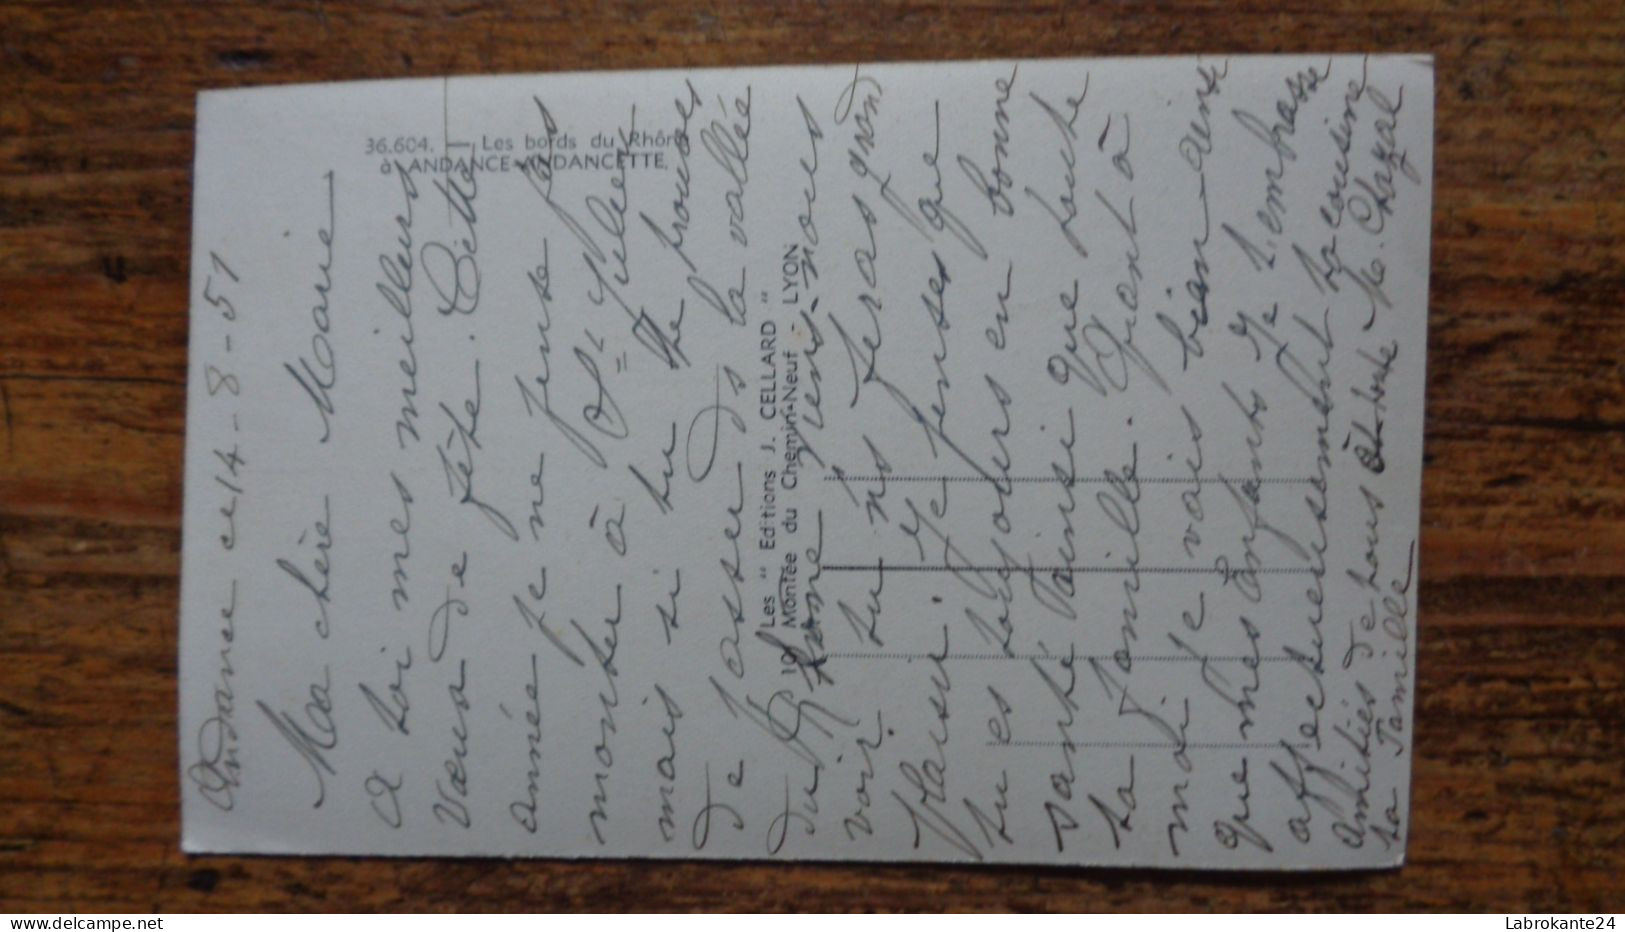 36.604. — Les bords du Rhône
à ANDANCE-ANDANCETTE
Les " Editions J. CELLARD "
10, Montée du Chemin-Neuf - LYON
Andance ce 14-8-51
Ma chère Marie
A toi mes meilleurs
vœux de fête. Cette
année je ne pense pas
monter à St Julien
mais si tu te trouves
de passer ds la vallée
du Rhône viens-nous
voir. tu ns feras grand
plaisir. Je pense que
tu es toujours en bonne
santé ainsi que toute
ta famille. Quant à
moi je vais bien ainsi
que mes Enfants Je t'embrasse
affectueusement ta cousine
amitiés de tous à toute M. Chazal
ta famille
Labrokante24